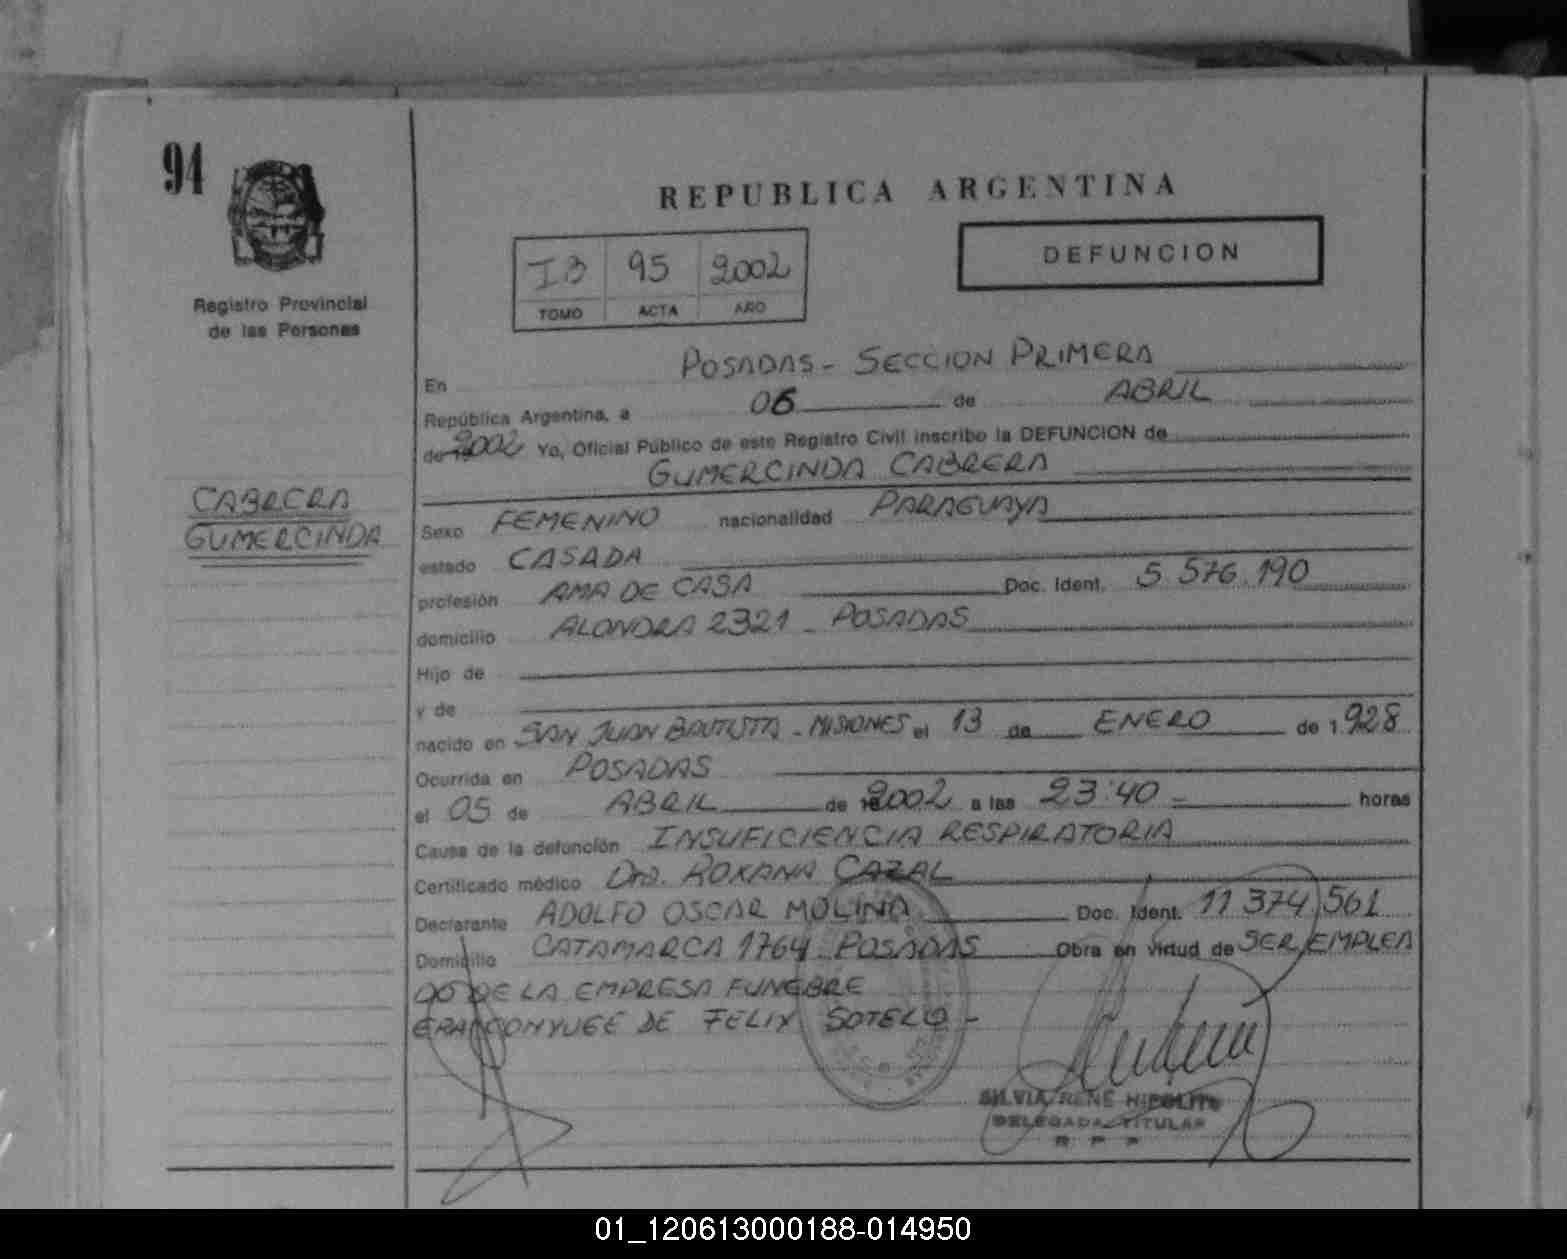 94
REPUBLICA ARGENTINA
I3 95 2002
TOMO ACTA AÑO
DEFUNCION
Registro Provincial
de las Personas
CABRERA
GUMERCINDA
En POSADAS - SECCION PRIMERA
República Argentina, a 06 de ABRIL
de 2002 Yo, Oficial Público de este Registro Civil inscribo la DEFUNCION de
GUMERCINDA CABRERA
Sexo FEMENINO nacionalidad PARAGUAYA
estado CASADA
profesión AMA DE CASA Doc. Ident. 5.576.190
domicilio ALONDRA 2321 - POSADAS
Hijo de
y de
nacido en SAN JUAN BAUTISTA - MISIONES el 13 de ENERO de 1.928
Ocurrida en POSADAS
el 05 de ABRIL de 2002 a las 23:40 - horas
Causa de la defunción INSUFICIENCIA RESPIRATORIA
Certificado médico Dra. ROXANA CAZAL
Declarante ADOLFO OSCAR MOLINA Doc. Ident. 11.374.561
Domicilio CATAMARCA 1764 - POSADAS Obra en virtud de SER EMPLEA
DO DE LA EMPRESA FUNEBRE
ERA CONYUGE DE FELIX SOTELO -
SILVIA RENE HIPOLITO
DELEGADA TITULAR
R P P
01_120613000188-014950